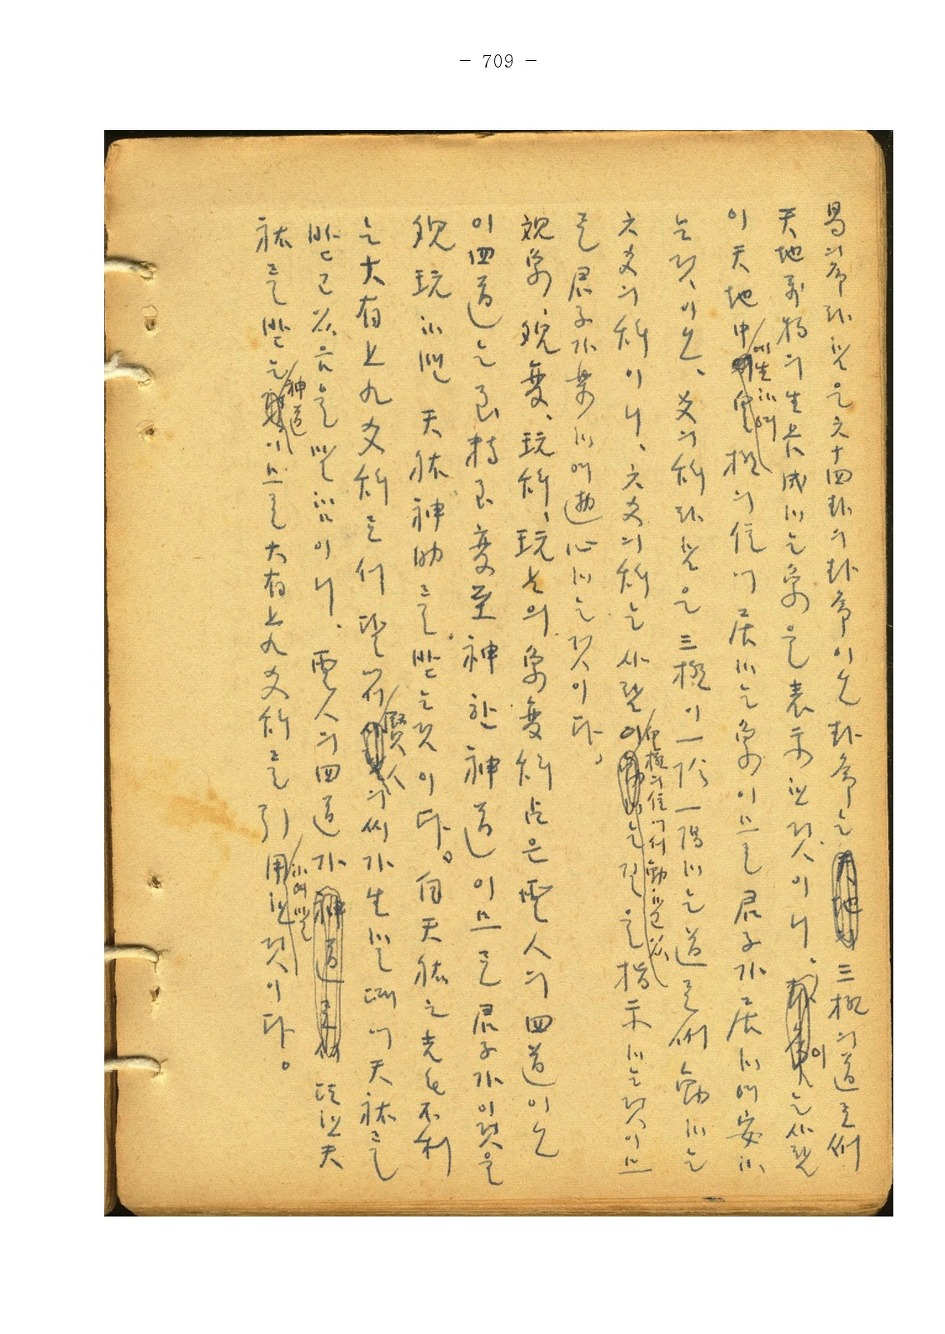 - 709 -
易의 序라 함은 六十四卦의 卦序이오 卦序는 三極의 道로써
天地萬物의 生長成하는 象을 表示한 것이니, 이는 사람
이 天地中에 生하여 極의 位에 居하는 象이므로 君子가 居하여 安하
는 것이오, 爻의 辭라 함은 三極이 一陰一陽하는 道로써 動하는
六爻의 辭이니, 六爻의 辭는 사람이 極의 位에서 動하고 을 指示하는 것이므
로 君子가 樂하여 心하는 것이다,
觀象, 觀變, 玩辭, 玩占의 象變辭占은 聖人의 四道이오
이 四道는 至精至變至神한 神道이므로 君子가 이것을
觀玩하면 天祐神助를 받는 것이다。 自天祐之吉无不利
는 大有上九爻辭로서 賢人의 씨가 生할 때에 天祐를
받고 하니, 聖人의 四道가 또한 天
祐를 받는 神道이므로 大有上九爻辭를 引用한 것이다。